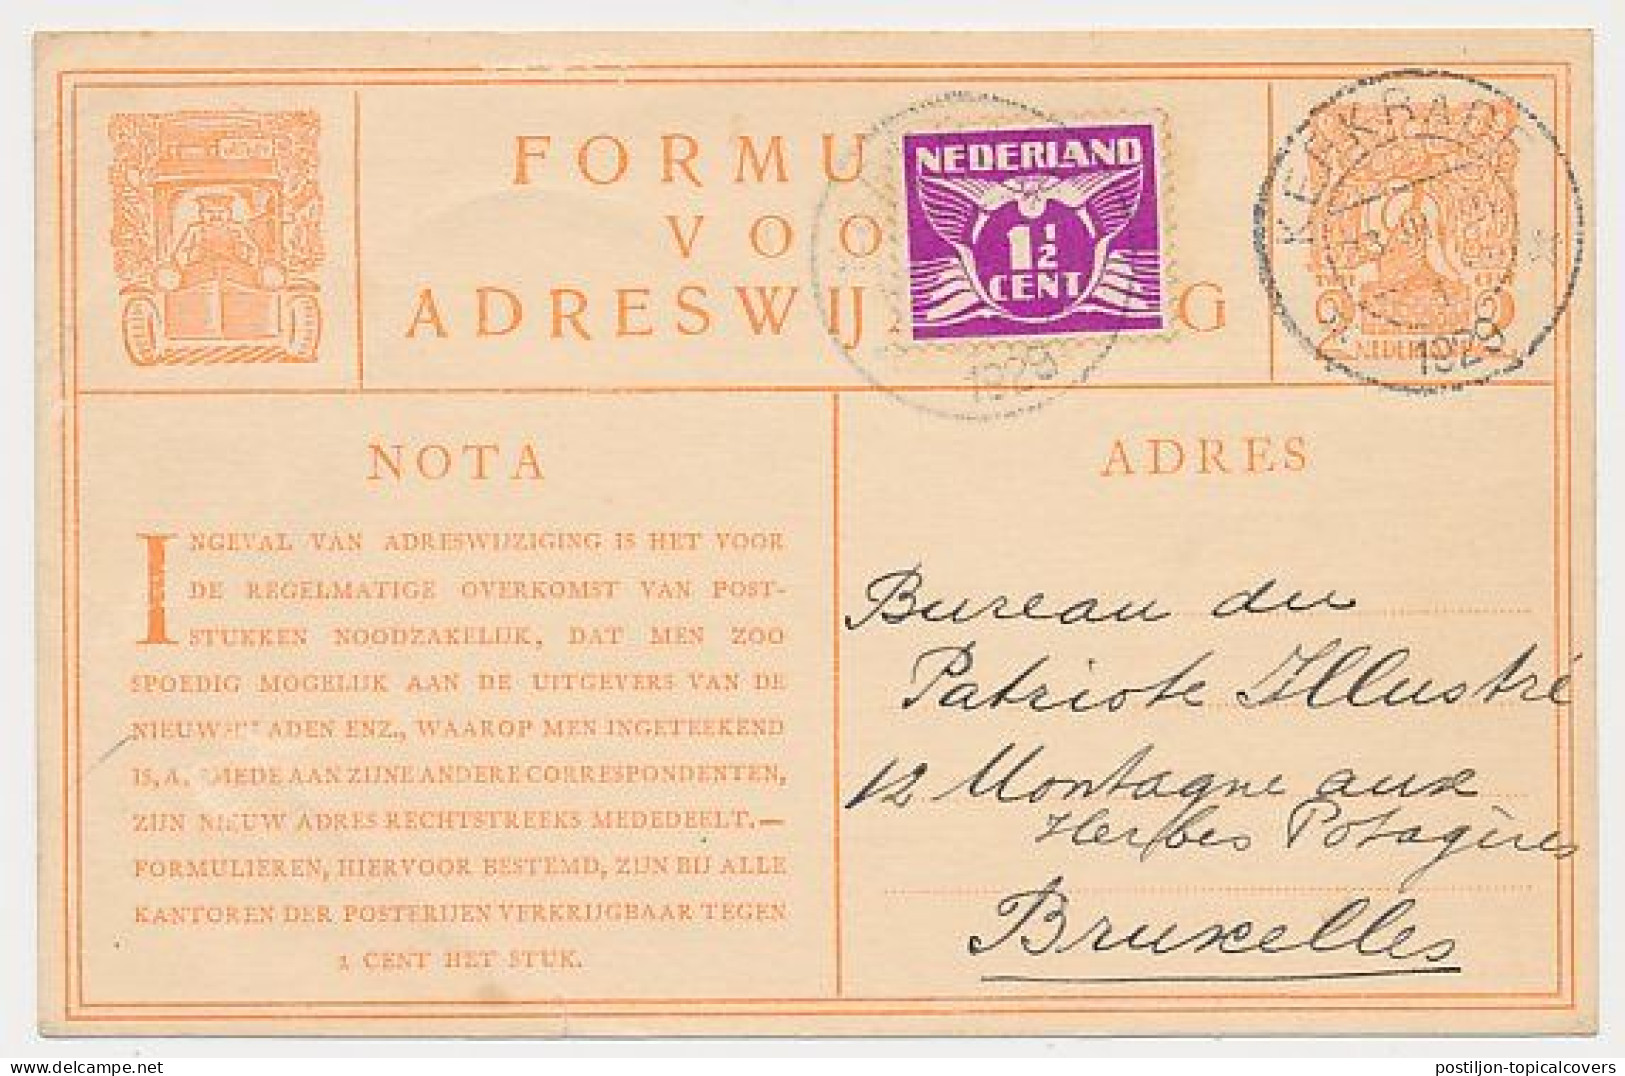 FORMU
VOO
ADRESWIJ G
NEDERLAND
1½
CENT
1929
KERKRADE
1929
2 2
NEDERLAND
NOTA
INGEVAL VAN ADRESWIJZIGING IS HET VOOR
DE REGELMATIGE OVERKOMST VAN POST-
STUKKEN NOODZAKELIJK, DAT MEN ZOO
SPOEDIG MOGELIJK AAN DE UITGEVERS VAN DE
NIEUWSBLADEN ENZ., WAAROP MEN INGETEEKEND
IS, ALSMEDE AAN ZIJNE ANDERE CORRESPONDENTEN,
ZIJN NIEUW ADRES RECHTSTREEKS MEDEDEELT.—
FORMULIEREN, HIERVOOR BESTEMD, ZIJN BIJ ALLE
KANTOREN DER POSTERIJEN VERKRIJGBAAR TEGEN
1 CENT HET STUK.
ADRES
Bureau du
Patriote Illustré
12 Montagne aux
Herbes Potagères
Bruxelles
postiljon-topicalcovers